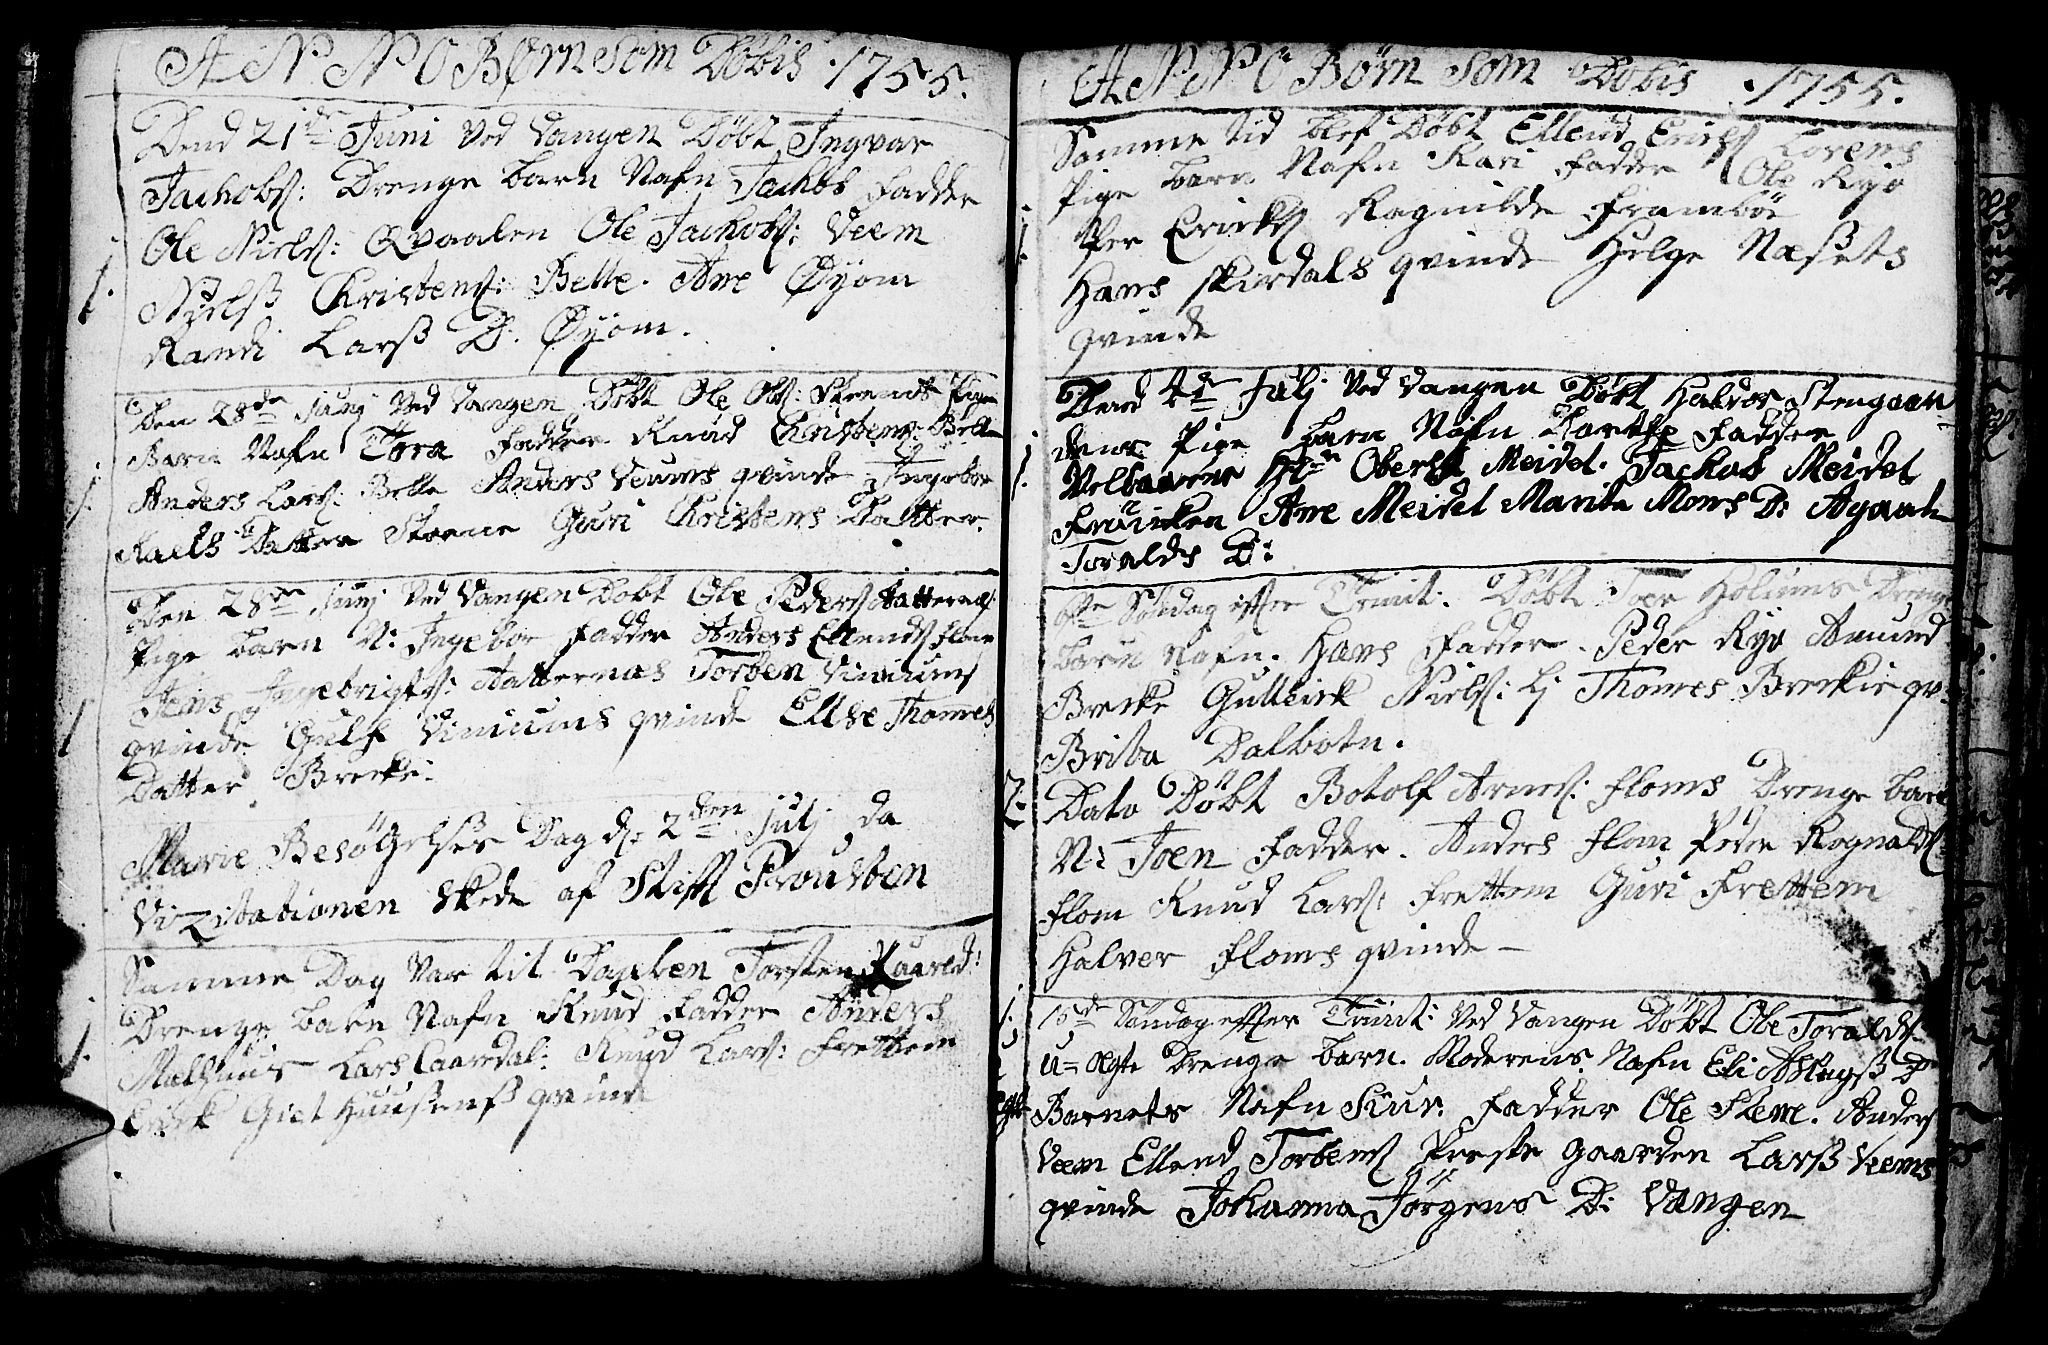 ANNO Børn som Døbis 1755.
Dend 21de Juni ved Vangen Døbt Ingvar
Jachobs: Drenge barn Nafn Jachob Fadder
Ole Niels: Qvaalen Ole Jachobs: Veem
Nielß Christens: Belle. Ane Øyom
Randi Larß D. Øyom.
1.
Den 28de Junj Ved Vangen Døbt Ole Ols: Pige
Barn Nafn Tora Fadder Knud Christens: Belle
Anders Lars: Belle Anders Veums qvinde Ingebor
Datter Stoene Guri Christens Datter.
1.
Den 28de Junj Ved Vangen Døbt Ole Peders Aatternæs
Pige barn N: Ingebor Fadder Anders Ellends Flom
Jens Ingebrigts: Aatternæs Torben Viniums
qvinde Gulf Viniums qvinde Ellse Thommes
Datter Brecke.
1
Marie Besøgelses Dag d: 2den Julj da
Vizitationen skede af Stift Prousten
Samme Dag var til Daaben Torsten
Drenge barn Nafn Knud Fadder Anders
Melhuus Lars Knud Lars: Frettem
qvinde
1.
ANNO Børn som Døbis 1755.
Samme tid blef Døbt Ellend Ericks Lorens
Pige barn Nafn Kari Fadder Ole Ryo
Per Ericks Ragnilde Framboe
Hans Skirdals qvinde Helge Næsets
qvinde
1.
Dend 4de Julj Ved Vangen Døbt Halvor Stengaar
dens Pige barn Nafn Fadder
Velbaarne Hr Oberst Meidel. Jachob Meidel
Frøicken Ane Meidel Marite Mons D: Agaate
Toralds D:
1.
6te Søndag efter Trinit: Døbt Joen Holums Drenge
barn Nafn. Hans Fadder. Peder Ryo Amund
Brecke Gulleick Niels: Lj Thomes Breckis qv:
Brita Dalbotn.
2.
Dato Døbt Botolf Arnes: Floms Drenge barn
N: Joen Fadder. Anders Flom Peder Rognalds
Flom Knud Lars: Frettem Guri Frettem
Halver Floms qvinde –
1.
10de Søndag effter Trinit: Ved Vangen Døbt Ole Toralds:
u=ægte Drenge barn. Moderens Nafn Eli Aslagß D
Barnets Nafn Siur: Fadder Ole Stene. Anders
Veem Ellend Torbens Præste gaarden Larß Veems
qvinde Johanna Jørgens D: Vangen